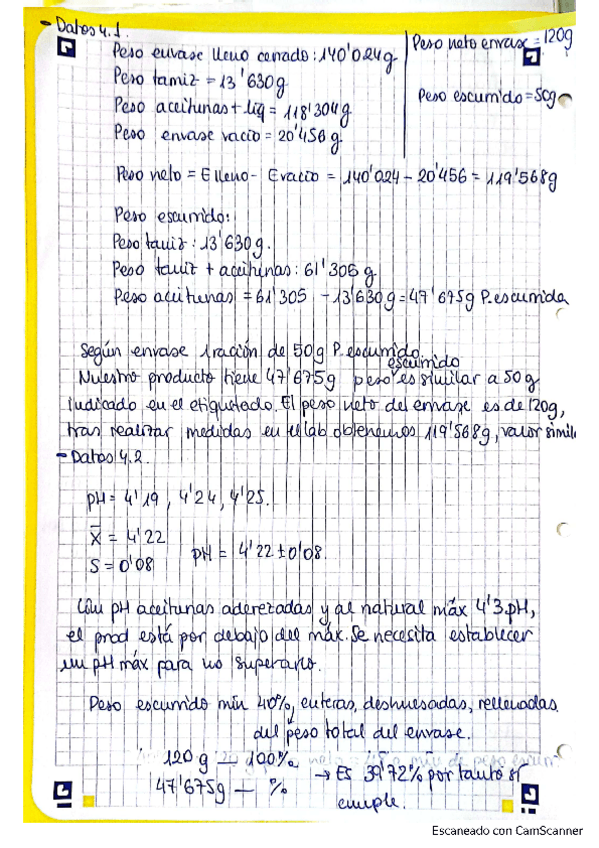 - Datos 4.1.
Peso envase lleno cerrado: 140'024g
Peso neto envase = 120g
Peso tamiz = 13'630g
Peso escurrido = 50g
Peso aceitunas + liq = 118'304g
Peso envase vacio = 20'456g.
Peso neto = E lleno - E vacio = 140'024 - 20'456 = 119'568g
Peso escurrido:
Peso tamiz: 13'630g.
Peso tamiz + aceitunas: 61'305 g
Peso aceitunas = 61'305 - 13'630g = 47'675g P. escurrida
Según envase 1 ración de 50g P. escurrido
escurrido
Nuestro producto tiene 47'675g peso es similar a 50g
indicado en el etiquetado. El peso neto del envase es de 120g,
tras realizar medidas en el lab obtenemos 119'568g, valor simil
- Datos 4.2.
pH = 4'19, 4'24, 4'25.
X̅ = 4'22
S = 0'08
pH = 4'22 ± 0'08.
Com pH aceitunas aderezadas y al natural máx 4'3 pH,
el prod está por debajo del máx. Se necesita establecer
un pH máx para no superarlo.
Peso escurrido mín 40%, enteras, deshuesadas, rellenadas
del peso total del envase.
120 g — 100%
47'675g — %
→ Es 39'72% por tanto sí
cumple.
Escaneado con CamScanner